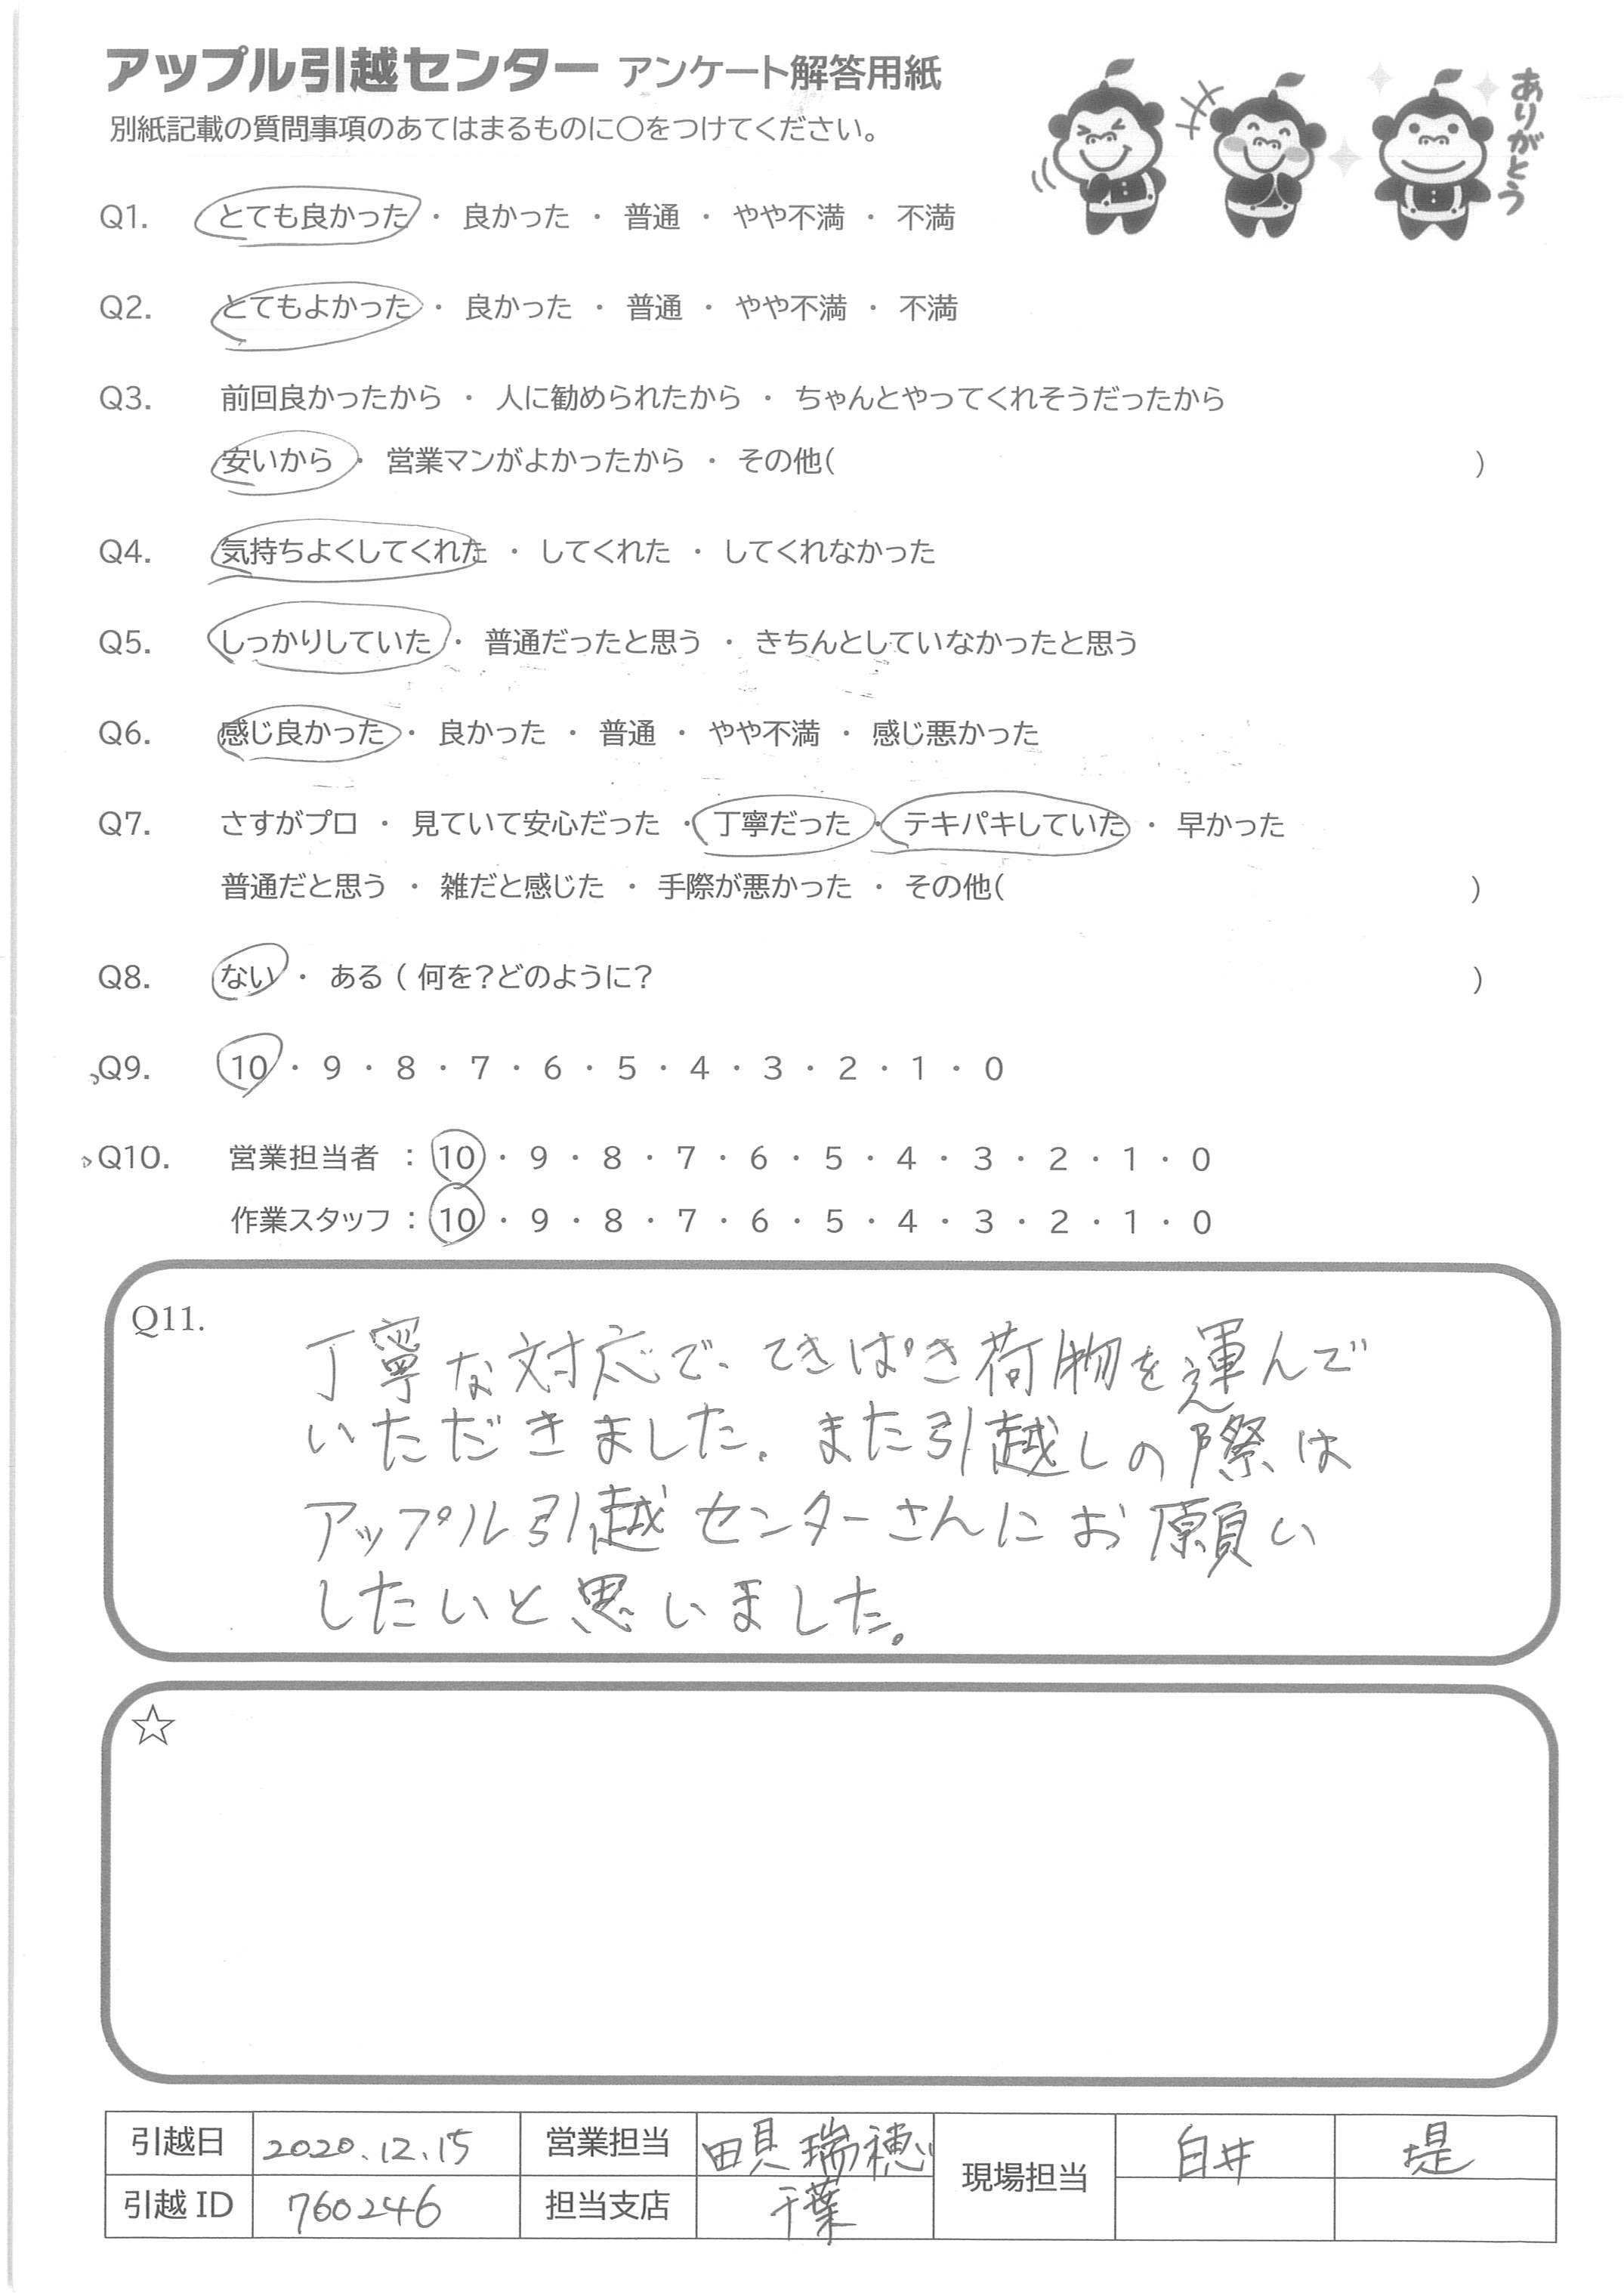 アップル引越センター アンケート解答用紙
別紙記載の質問事項のあてはまるものに○をつけてください。
ありがとう
Q1. とても良かった ・ 良かった ・ 普通 ・ やや不満 ・ 不満
Q2. とてもよかった ・ 良かった ・ 普通 ・ やや不満 ・ 不満
Q3. 前回良かったから ・ 人に勧められたから ・ ちゃんとやってくれそうだったから
安いから ・ 営業マンがよかったから ・ その他( )
Q4. 気持ちよくしてくれた ・ してくれた ・ してくれなかった
Q5. しっかりしていた ・ 普通だったと思う ・ きちんとしていなかったと思う
Q6. 感じ良かった ・ 良かった ・ 普通 ・ やや不満 ・ 感じ悪かった
Q7. さすがプロ ・ 見ていて安心だった ・ 丁寧だった ・ テキパキしていた ・ 早かった
普通だと思う ・ 雑だと感じた ・ 手際が悪かった ・ その他( )
Q8. ない ・ ある ( 何を?どのように? )
Q9. 10 ・ 9 ・ 8 ・ 7 ・ 6 ・ 5 ・ 4 ・ 3 ・ 2 ・ 1 ・ 0
Q10. 営業担当者 : 10 ・ 9 ・ 8 ・ 7 ・ 6 ・ 5 ・ 4 ・ 3 ・ 2 ・ 1 ・ 0
作業スタッフ : 10 ・ 9 ・ 8 ・ 7 ・ 6 ・ 5 ・ 4 ・ 3 ・ 2 ・ 1 ・ 0
Q11.
丁寧な対応で、てきぱき荷物を運んで
いただきました。また引越しの際は
アップル引越センターさんにお願い
したいと思いました。
☆
引越日 2020.12.15 営業担当 瑞穂 現場担当 白井 堤
引越ID 760246 担当支店 千葉